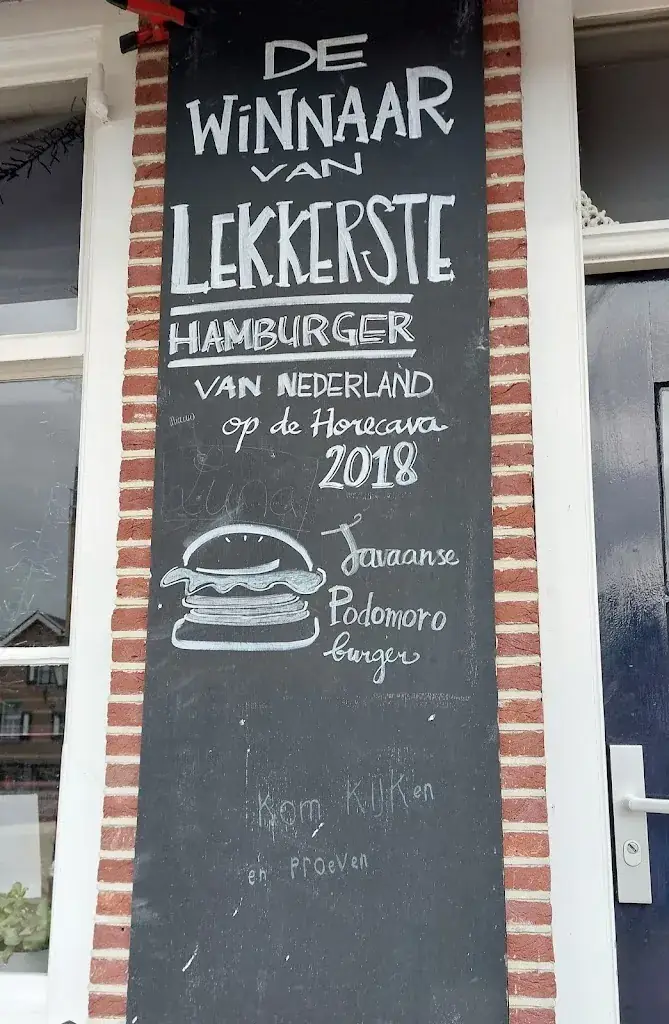 DE
WiNNAAR
VAN
LEKKERSTE
HAMBURGER
VAN NEDERLAND
op de Horecava
2018
Javaanse
Podomoro
burger
Kom KIJKen
en PROeVen